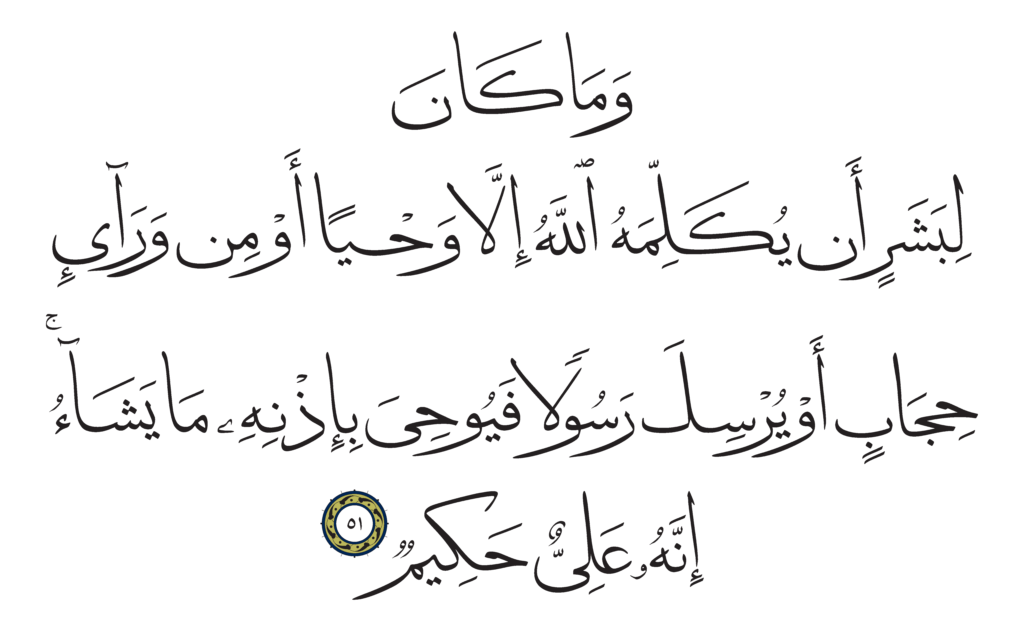 وَمَا كَانَ
لِبَشَرٍ أَن يُكَلِّمَهُ ٱللَّهُ إِلَّا وَحْيًا أَوْ مِن وَرَآئِ
حِجَابٍ أَوْ يُرْسِلَ رَسُولًا فَيُوحِىَ بِإِذْنِهِۦ مَا يَشَآءُ ۚ
إِنَّهُۥ عَلِىٌّ حَكِيمٌ ٥١